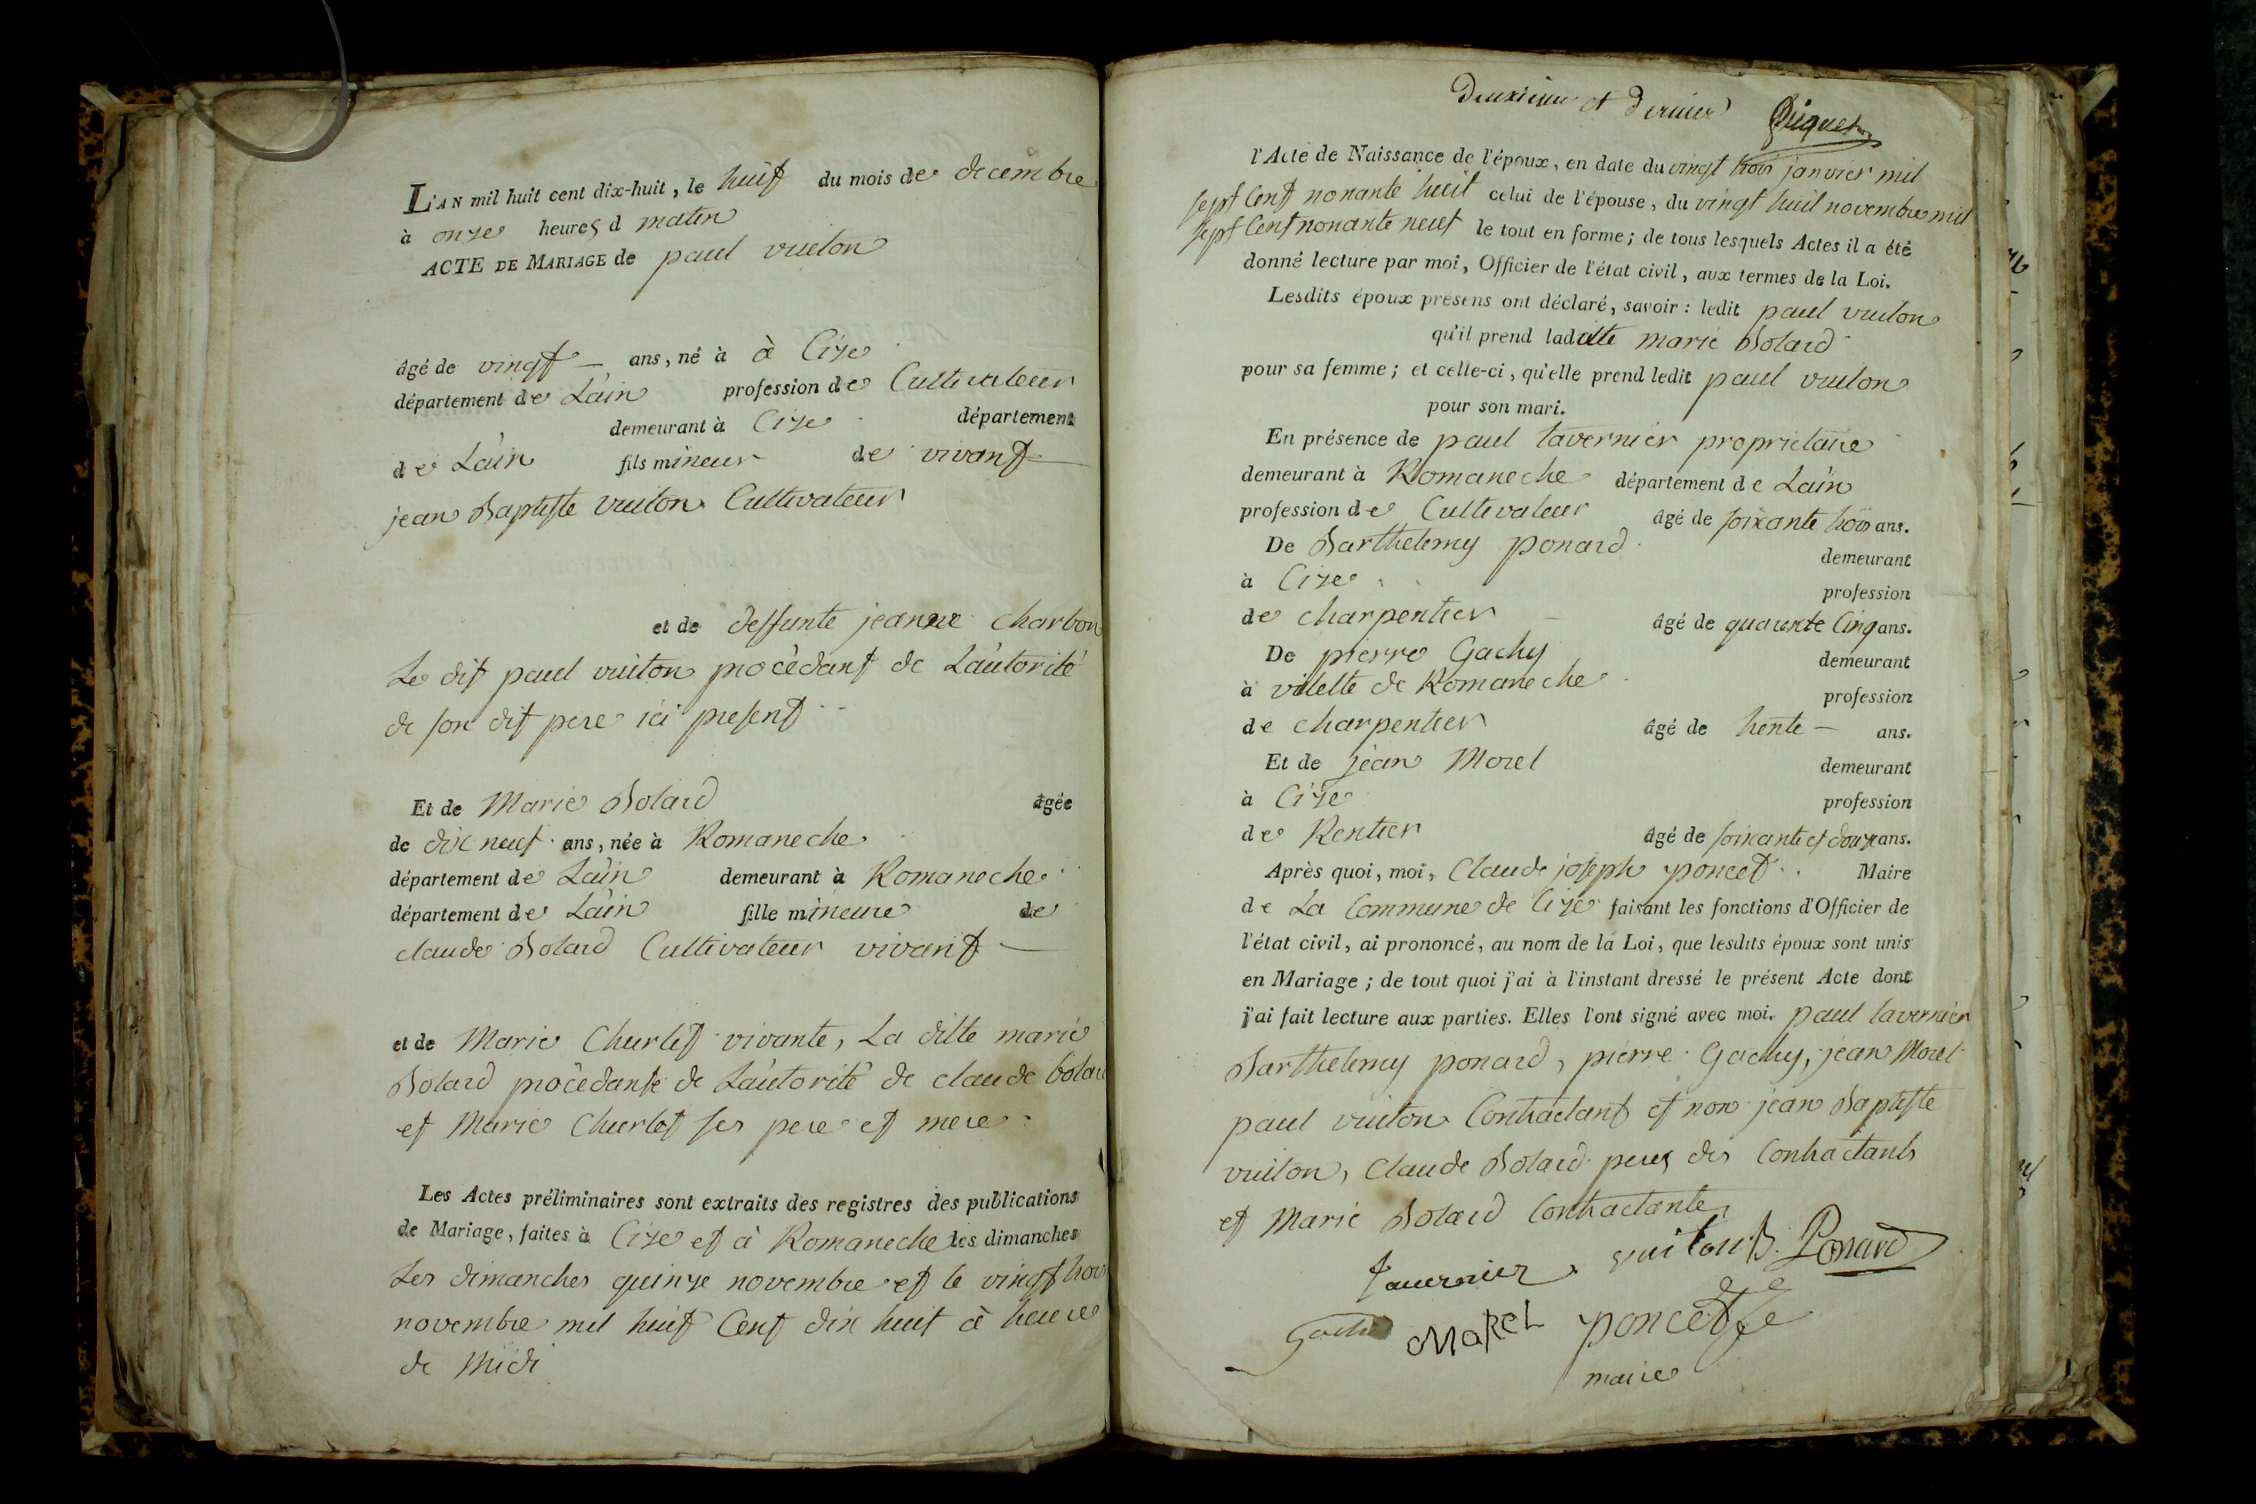 L'AN mil huit cent dix-huit, le huit du mois de decembre
à onze heures d matin
ACTE DE MARIAGE de paul vuiton
âgé de vingt — ans, né à à Cize
département de Lain profession de Cultivateur
demeurant à Cize département
de Lain fils mineur de vivant
jean Baptiste vuiton Cultivateur
et de deffunte jeanne charbon
Le dit paul vuiton procèdant de Lautorité
de son dit pere ici present
Et de Marie Bolard âgée
de dix neuf ans, née à Romaneche
département de Lain demeurant à Romaneche
département de Lain fille mineure de
claude Bolard Cultivateur vivant
et de Marie Churlet vivante, La ditte marie
Bolard procèdante de Lautorité de claude bolard
et Marie Churlet ses pere et mere
Les Actes préliminaires sont extraits des registres des publications
de Mariage, faites à Cize et à Romaneche les dimanches
Les dimanches quinze novembre et le vingt trois
novembre mil huit Cent dix huit à heure
de Midi
Deuxieme et dernier
l'Acte de Naissance de l'époux, en date du vingt trois janvier mil
sept Cent nonante huit celui de l'épouse, du vingt huit novembre mil
sept Cent nonante neuf le tout en forme; de tous lesquels Actes il a été
donné lecture par moi, Officier de l'état civil, aux termes de la Loi.
Lesdits époux présens ont déclaré, savoir: ledit paul vuiton
qu'il prend ladite marie Bolard
pour sa femme; et celle-ci, qu'elle prend ledit paul vuiton
pour son mari.
En présence de paul tavernier proprietaire
demeurant à Romaneche département de Lain
profession de Cultivateur âgé de soixante trois ans.
De Barthelemy ponard demeurant
à Cize profession
de charpentier âgé de quarente Cinq ans.
De pierre Gachy demeurant
à vilette de Romaneche profession
de charpentier âgé de trente — ans.
Et de jean Morel demeurant
à Cize profession
de Rentier âgé de soixante et douze ans.
Après quoi, moi, Claude joseph poncet Maire
de La Commune de Cize faisant les fonctions d'Officier de
l'état civil, ai prononcé, au nom de la Loi, que lesdits époux sont unis
en Mariage; de tout quoi j'ai à l'instant dressé le présent Acte dont
j'ai fait lecture aux parties. Elles l'ont signé avec moi. paul tavernier
Barthelemy ponard, pierre Gachy, jean Morel
paul vuiton Contractant et non jean Baptiste
vuiton, Claude Bolard peres des Contractants
et Marie Bolard Contractante
Tavernier vuiton B. Ponard
MOREL poncet
maire